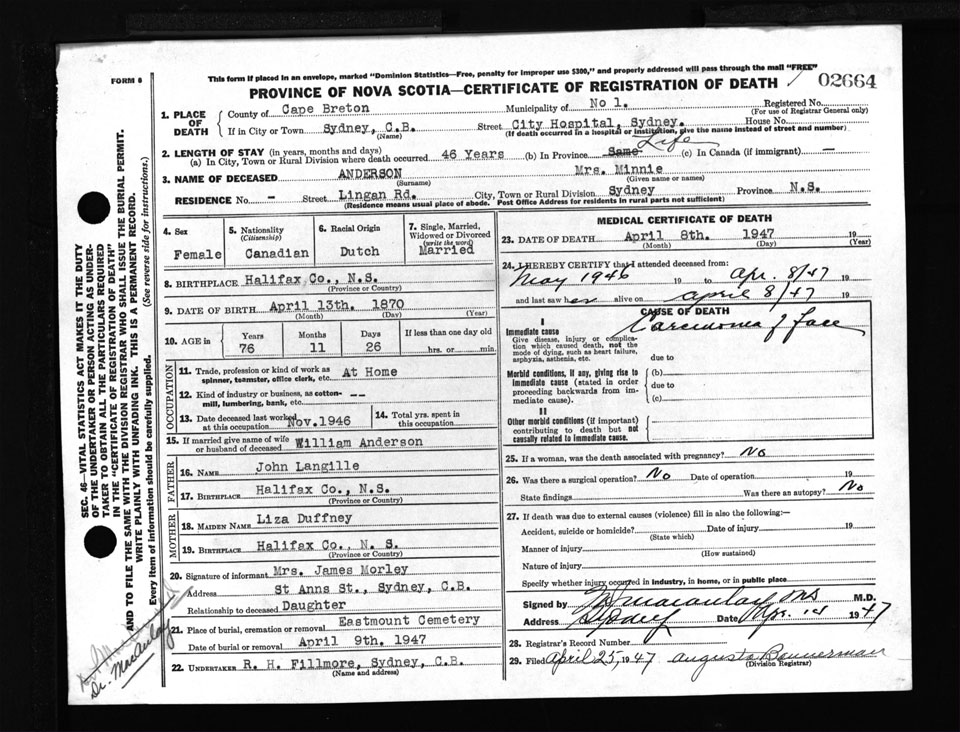 FORM 6
This form if placed in an envelope, marked "Dominion Statistics—Free, penalty for improper use $300," and properly addressed will pass through the mail "FREE"
02664
PROVINCE OF NOVA SCOTIA—CERTIFICATE OF REGISTRATION OF DEATH
SEC. 46—VITAL STATISTICS ACT MAKES IT THE DUTY
OF THE UNDERTAKER OR PERSON ACTING AS UNDER-
TAKER TO OBTAIN ALL THE PARTICULARS REQUIRED
IN THE "CERTIFICATE OF REGISTRATION OF DEATH"
AND TO FILE THE SAME WITH THE DIVISION REGISTRAR WHO SHALL ISSUE THE BURIAL PERMIT.
WRITE PLAINLY WITH UNFADING INK. THIS IS A PERMANENT RECORD.
Every item of information should be carefully supplied. (See reverse side for instructions.)
Dr. MacAulay
1. PLACE OF DEATH
County of Cape Breton Municipality of No 1. Registered No.
(For use of Registrar General only)
If in City or Town Sydney, C.B. Street City Hospital, Sydney. House No.
(Name) (If death occurred in a hospital or institution, give the name instead of street and number)
2. LENGTH OF STAY (in years, months and days)
(a) In City, Town or Rural Division where death occurred 46 Years (b) In Province Same Life (c) In Canada (if immigrant) —
3. NAME OF DECEASED ANDERSON Mrs. Minnie
(Surname) (Given name or names)
RESIDENCE No. - Street Lingan Rd. City, Town or Rural Division Sydney Province N.S.
(Residence means usual place of abode. Post Office Address for residents in rural parts not sufficient)
4. Sex Female
5. Nationality (Citizenship) Canadian
6. Racial Origin Dutch
7. Single, Married, Widowed or Divorced (write the word) Married
8. BIRTHPLACE Halifax Co., N.S.
(Province or Country)
9. DATE OF BIRTH April 13th. 1870
(Month) (Day) (Year)
10. AGE in Years 76 Months 11 Days 26 If less than one day old hrs. or min.
OCCUPATION
11. Trade, profession or kind of work as spinner, teamster, office clerk, etc. At Home
12. Kind of industry or business, as cotton-mill, lumbering, bank, etc. --
13. Date deceased last worked at this occupation Nov. 1946
14. Total yrs. spent in this occupation
15. If married give name of wife or husband of deceased William Anderson
FATHER
16. NAME John Langille
17. BIRTHPLACE Halifax Co., N.S.
(Province or Country)
MOTHER
18. MAIDEN NAME Liza Duffney
19. BIRTHPLACE Halifax Co., N. S.
(Province or Country)
20. Signature of informant Mrs. James Morley
Address St Anns St., Sydney, C.B.
Relationship to deceased Daughter
21. Place of burial, cremation or removal Eastmount Cemetery
Date of burial or removal April 9th. 1947
22. UNDERTAKER R. H. Fillmore, Sydney, C.B.
(Name and address)
MEDICAL CERTIFICATE OF DEATH
23. DATE OF DEATH April 8th. 1947
(Month) (Day) (Year)
24. I HEREBY CERTIFY that I attended deceased from:
May 1946 19 to Apr. 8/47 19
and last saw her alive on April 8/47 19
CAUSE OF DEATH
I
Immediate cause Carcinoma of face
Give disease, injury or complica-
tion which caused death, not the
mode of dying, such as heart failure,
asphyxia, asthenia, etc.
due to
Morbid conditions, if any, giving rise to
immediate cause (stated in order
proceeding backwards from im-
mediate cause).
(b)
due to
(c)
II
Other morbid conditions (if important)
contributing to death but not
causally related to immediate cause.
25. If a woman, was the death associated with pregnancy? No
26. Was there a surgical operation? No Date of operation 19
State findings Was there an autopsy? No
27. If death was due to external causes (violence) fill in also the following:—
Accident, suicide or homicide? Date of injury 19
(State which)
Manner of injury
(How sustained)
Nature of injury
Specify whether injury occurred in industry, in home, or in public place
Signed by Macaulay M.D.
Address Sydney Date Apr. 1947
28. Registrar's Record Number
29. Filed April 25, 1947 Augusta Bannerman
(Division Registrar)